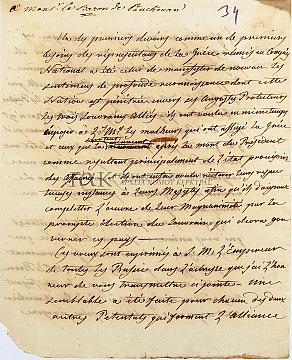 à Monsr le Baron de Ruckman
34
Un des premiers devoirs comme un des premiers
besoins des représentans de la Grèce réunis en Congrès
National a été celui de manifester de nouveau les
sentimens de profonde reconnaissance dont cette
Nation est pénétrée envers ses Augustes Protecteurs
les trois Souverains Alliés. Ils ont voulu en même temps
exposer à L. M. les malheurs qui ont affligé la Grèce
et ceux qui la menacent après la mort du Président
comme résultant principalement de l'état provisoire
des affaires. Ils ont
instances à Leurs Majestés afin qu'Elles daignent
completter l'œuvre de Leur Magnanimité par la
prompte élection du Souverain qui devra gou-
verner ce pays.
Ces vœux sont exprimés à S. M. l'Empereur
de toutes les Russies dans l'adresse que j'ai l'hon-
neur de vous transmettre ci-jointe. Une
semblable a été faite pour chacun des deux
autres Potentats qui forment l'alliance